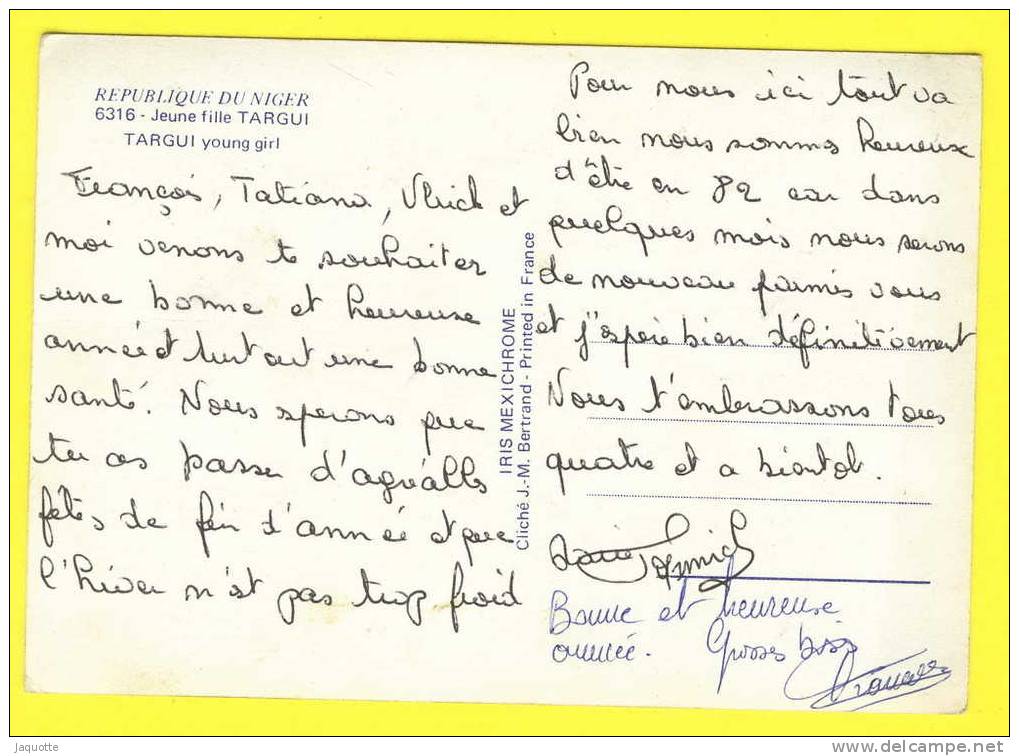 REPUBLIQUE DU NIGER
6316 - Jeune fille TARGUI
TARGUI young girl
François, Tatiana, Ulrich et
moi venons te souhaiter
une bonne et heureuse
année et surtout une bonne
santé. Nous sperons que
tu as passer d'agréalls
fêtes de fin d'année et que
l'hiver n'st pas trop froid
IRIS MEXICHROME
Cliché J.-M. Bertrand - Printed in France
Pour nous ici tout va
bien nous sommes heureux
d'être en 82 car dans
quelques mois nous serons
de nouveau parmis vous
et j'espère bien définitivement
Nous t'embrassons tous
quatre et a bientot.
Bonne et heureuse
année. Grosses bises
Jaquotte
www.delcampe.net